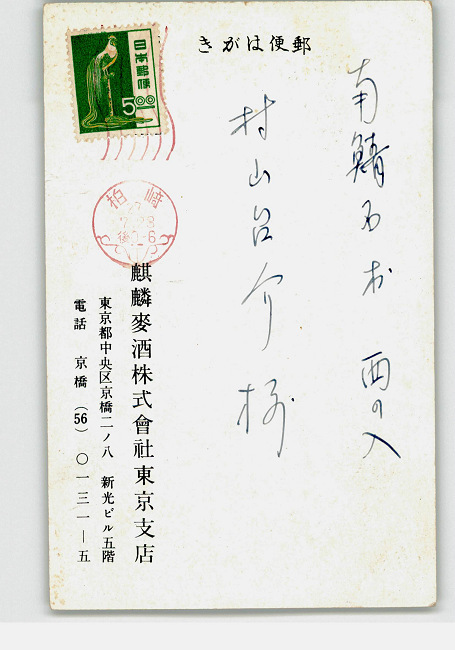 郵便はがき
南鯖石村 西の入
村山台介様
日本郵便
5.00
柏崎
27
7.28
後0-6
麒麟麥酒株式會社東京支店
東京都中央区京橋二ノ八 新光ビル五階
電話 京橋(56)〇一三一―五